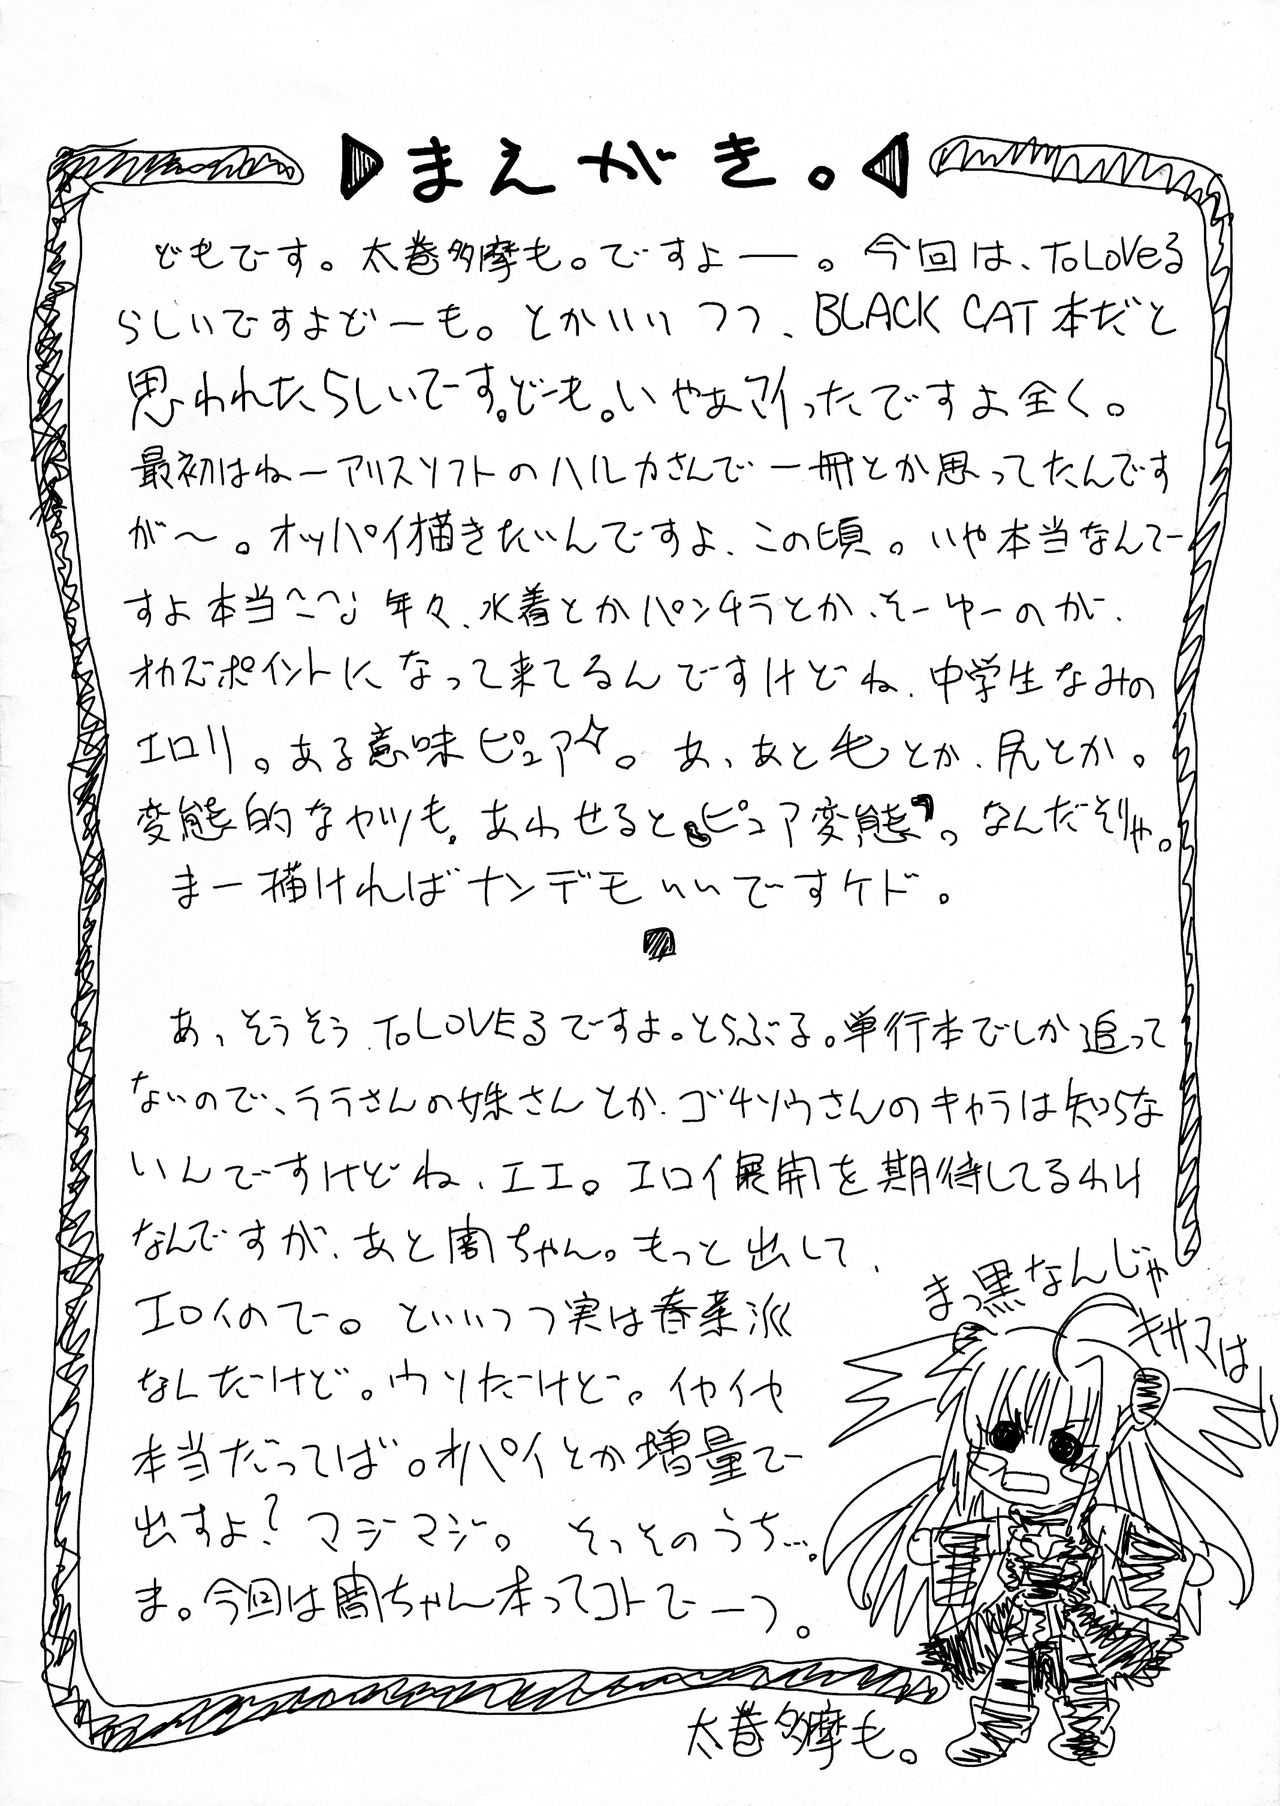 まえがき。
どもです。太巻多摩も。ですよ――。今回は、ToLoveる
らしいですよどーも。とかいいつつ、BLACK CAT本だと
思われたらしいでーす。どーも。いやぁマイったですよ全く。
最初はねーアリスソフトのハルカさんで一冊とか思ってたんです
が〜。オッパイ描きたいんですよ、この頃。いや本当なんでー
すよ本当^-^; 年々、水着とかパンチラとか、そーゆーのが、
オカズポイントになって来てるんですけどね、中学生なみの
エロリ。ある意味ピュア☆。あ、あと毛とか、尻とか。
変態的なヤツも。あわせると〝ピュア変態〟。なんだそりゃ。
まー描ければナンデモいいですケド。
あ、そうそう、ToLOVEるですよ。とらぶる。単行本でしか追って
ないので、ララさんの妹さんとか、ゴチソウさんのキャラは知らな
いんですけどね、エエ。エロイ展開を期待してるわけ
なんですが、あと闇ちゃん。もっと出して、
エロイのでー。といいつつ実は春菜派
なんだけど。ウソだけど。イヤイヤ
本当だってば。オパイとか増量で
出すよ？マジマジ。そっそのうち…。
ま。今回は闇ちゃん本ってコトでーっ。
まっ黒なんじゃ
キサマは
太巻多摩も。